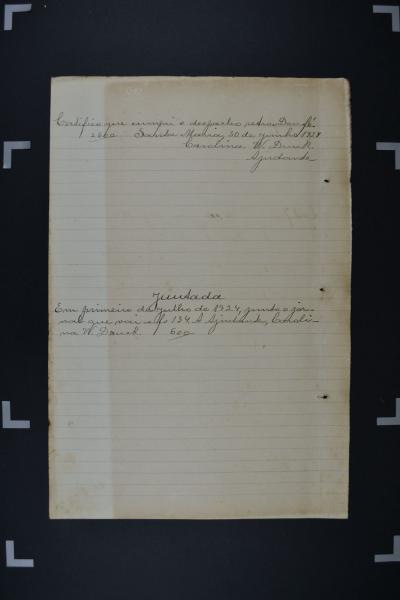 Certifico que cumpri o despacho retro. Dou fé.
2500 Santa Maria, 30 de junho 1924
Carolina W. Dauck
Ajudante
Juntada
Em primeiro de julho de 1924, junto o jor-
nal que vai a fls 134. A Ajudante, Caroli-
na W. Dauck. 500